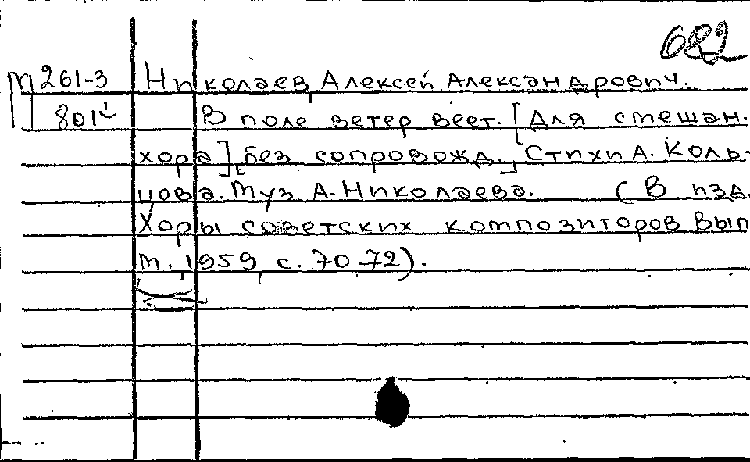 682
М 261-3 Николаев, Алексей Александрович.
801 В поле ветер веет. [Для смешан.
хора] [без сопровожд.] Стихи А. Коль-
цова. Муз А. Николаева. (В изд.
Хоры советских композиторов Вып
М., 1959, с. 70-72).